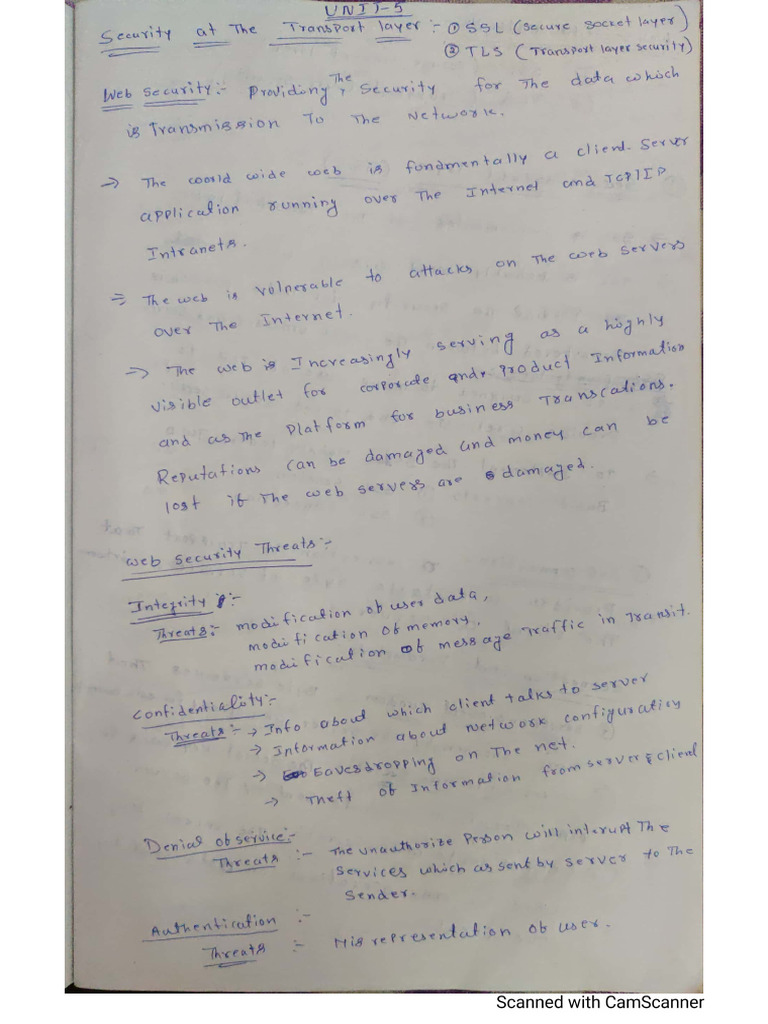 UNIT-5
Security at The Transport layer :- ① SSL (secure socket layer)
② TLS (Transport layer security)
Web Security:- Providing The Security for The data which
is Transmission To The Network.
→ The world wide web is fundmentally a client-server
application running over The Internet and TCP/IP
Intranets.
⇒ The web is volnerable to attacks on The web servers
over The Internet.
→ The web is Increasingly serving as a highly
visible outlet for corporate and product Information
and as The Platform for business Transcations.
Reputations can be damaged and money can be
lost if The web servers are damaged.
Web Security Threats:-
Integrity :-
Threats:- modification of user data,
modification of memory,
modification of message traffic in transit.
Confidentiality:-
Threats:- → Info about which client talks to server
→ Information about network configuration
→ Eavesdropping on The net.
→ Theft of Information from server & client
Denial of service:-
Threats :- The unauthorize Person will interupt The
services which as sent by server to The
Sender.
Authentication :-
Threats :- Misrepresentation of user.
Scanned with CamScanner